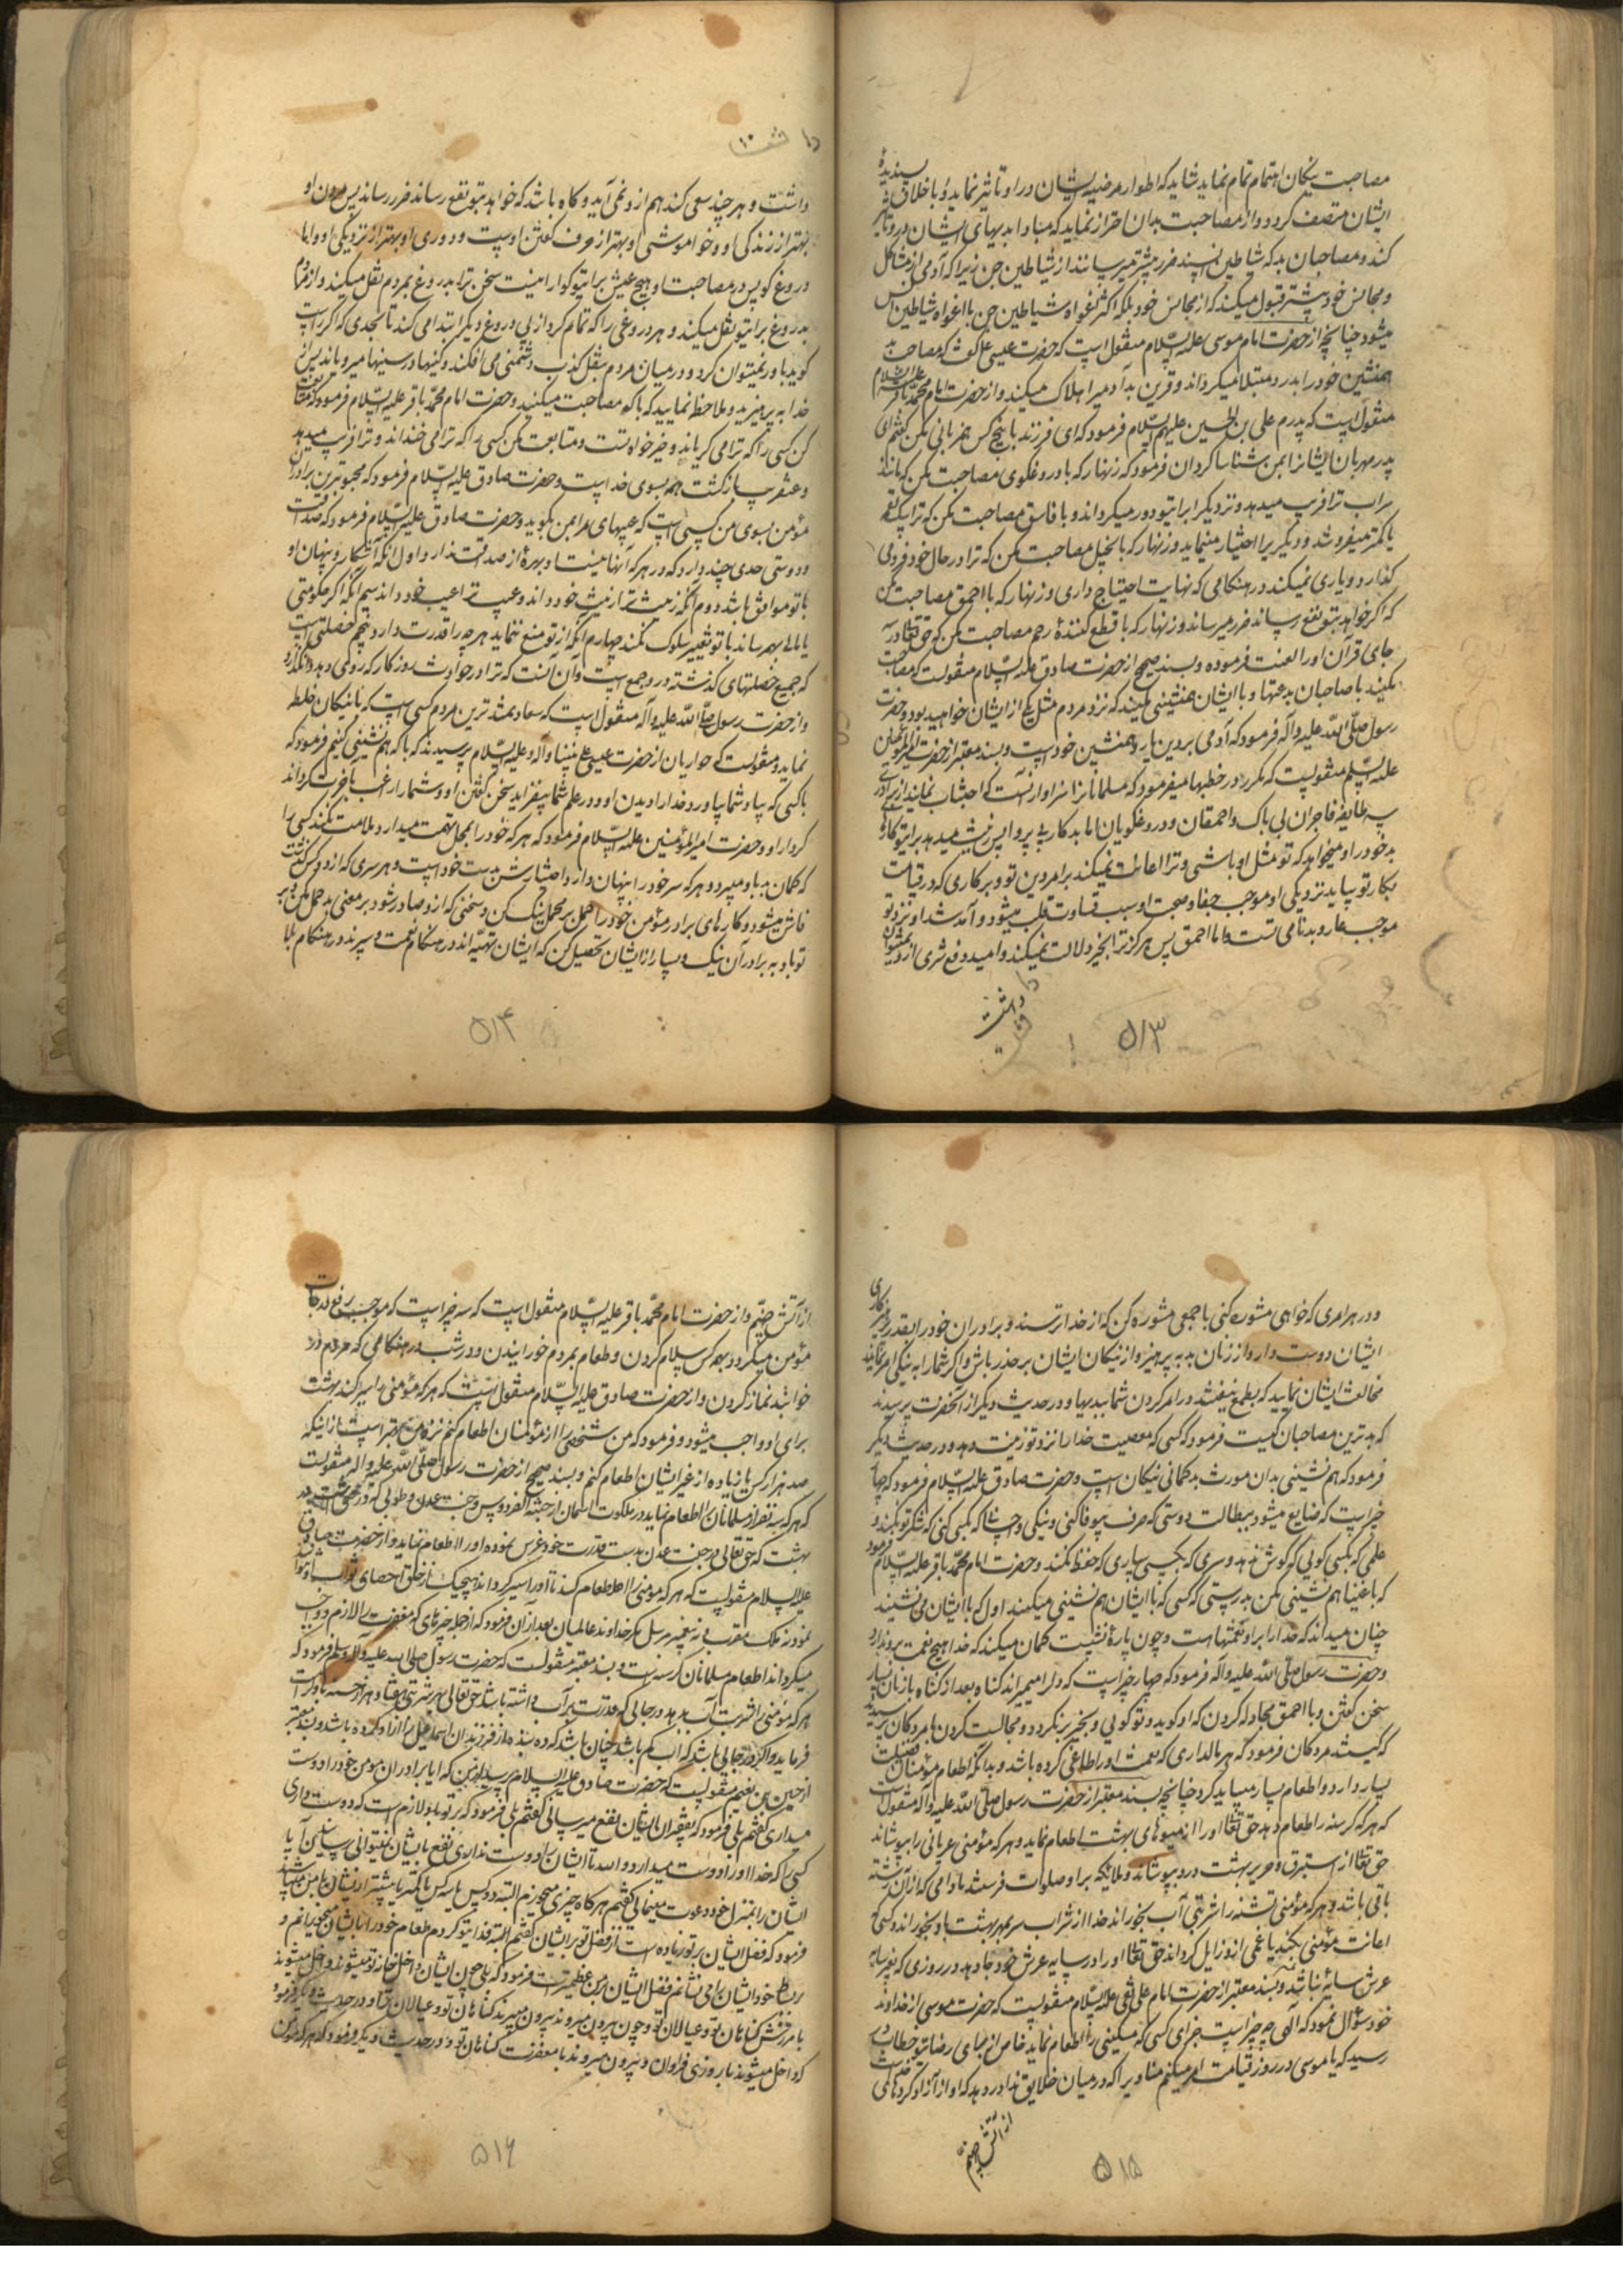 مصاحبت نیکان اهتمام تمام نماید شاید که اطوار مرضیه ایشان در او تاثیر نماید و باخلاق پسندیدهٔ
ایشان متصف گردد و از مصاحبت بدان احتراز نماید که مبادا بدیهای ایشان در و تاثیر
کند و مصاحبان بد که شیاطین انسند ضرر بیشتر میرسانند از شیاطین جن زیرا که آدمی از مشاکل
و مجالس خود بیشتر قبول میکند که از مجالس خود بلکه اکثر اغواء شیاطین جن با اغواء شیاطین انس
میشود چنانچه از حضرت امام موسی علیه السّلام منقول است که حضرت عیسی ع گفت که مصاحب بد
همنشین خود را بدرد مبتلا میگرداند و قرین بد آدمیرا هلاک میکند و از حضرت امام محمّد باقر علیه السلام
منقول است که پدرم علی بن الحسین علیهم السّلام فرمود که ای فرزند با پنج کس همزبانی مکن گفتم ای
پدر مهربان ایشانرا بمن بشناسا گردان فرمود که زنهار که با دروغگوی مصاحبت مکن که مانند
سراب ترا فریب میدهد و نزدیک را برای تو دور میگرداند و با فاسق مصاحبت مکن که ترا بیک لقمه
یا کمتر میفروشد و دیگریرا اختیار مینماید و زنهار که با بخیل مصاحبت مکن که ترا در حال خود فرو می
گذارد و یاری نمیکند در هنگامی که نهایت احتیاج داری و زنهار که با احمق مصاحبت مکن
که اگر خواهد بتو نفع رساند ضرر میرساند و زنهار که با قطع کنندهٔ رحم مصاحبت مکن که حق تعالی در سه
جای قرآن او را لعنت فرموده و بسند صحیح از حضرت صادق علیه السّلام منقولست که مصاحبت
مکنید با صاحبان بدعتها و با ایشان همنشینی مکنید که نزد مردم مثل یکی از ایشان خواهید بود و حضرت
رسول صلّی اللّه علیه و آله فرمود که آدمی بر دین یار و همنشین خود است و بسند معتبر از حضرت امیر المؤمنین
علیه السّلم منقولست که مکرر در خطبها میفرمود که مسلمانانرا سزاوار آنست که اجتناب نمایند از برادری
سه طایفه فاجران بی باک و احمقان و دروغگویان اما بدکار بی پروا پس زینت میدهد برای تو کارهای
بد خود را و میخواهد که تو مثل او باشی و ترا اعانت نمیکند بر امر دین تو و بر کاری که در قیامت
بکار تو بیاید نزدیکی او موجب جفا و صحبت او سبب قساوت قلب میشود و آمد شد او نزد تو
موجب عار و بدنامی تست و اما احمق پس هرگز ترا بخیر دلالت نمیکند و امید دفع شری از و نمیتوان
داشت
۵۱۳
داشت و هر چند سعی کند هم از و نمی آید و گاه باشد که خواهد بتو نفع رساند ضرر رساند پس مردن او
بهتر از زندگی او و خواموشی او بهتر از حرف گفتن اوست و دوری او بهتر از نزدیکی او و اما
دروغ گو پس در مصاحبت او هیچ عیش برای تو گوارا نیست سخن ترا بدروغ بمردم نقل میکند و از مردم
بدروغ برای تو نقل میکند و هر دروغی را که تمام کرد از پی دروغ دیگر ابتدا می کند تا بحدی که اگر راست
گوید باور نمیتوان کرد و در میان مردم بنقل کذب دشمنی می افکند و کینها در سینها میرویاند پس از
خدا بپرهیزید و ملاحظه نمایید که با که مصاحبت میکنید و حضرت امام محمّد باقر علیه السّلام فرمود که متابعت
کن کسی را که ترا می گریاند و خیرخواه تست و متابعت مکن کسی را که ترا می خنداند و ترا فریب میدهد
و عنقریب بازگشت همه بسوی خداست و حضرت صادق علیه السّلام فرمود که محبوبترین برادران
مؤمن بسوی من کسی است که عیبهای مرا بمن بگوید و حضرت صادق علیه السّلام فرمود که صداقت
و دوستی حدی چند دارد که در هر که آنها نیست او بهرهٔ از صداقت ندارد اول آنکه آشکار و پنهان او
با تو موافق باشد دوم آنکه زینت ترا زینت خود داند و عیب ترا عیب خود داند سیم آنکه اگر حکومتی
یا مالی بهم رساند با تو تغییر سلوک نکند چهارم آنکه از تو منع ننماید هر چه را قدرت دارد پنجم خصلتی است
که جمیع خصلتهای گذشته در و جمع است و آن آنست که ترا در حوادث روزگار که رو می دهد وانگذارد
و از حضرت رسول صلّی اللّه علیه و آله منقول است که سعادتمندترین مردم کسی است که با نیکان خلطه
نماید و منقولست که حواریان از حضرت عیسی علی نبینا و آله و علیه السّلام پرسیدند که با که هم نشینی کنیم فرمود که
با کسی که بیاد شما بیاورد خدا را دیدن او و در علم شما بیفزاید سخن گفتن او و شما را راغب بآخرت گرداند
کردار او و حضرت امیر المؤمنین علیه السّلام فرمود که هر که خود را بمحل تهمت میدارد ملامت نکند کسی را
که گمان بد باو میبرد و هر که سر خود را پنهان دارد اختیارش بدست خود است و هر سری که از دو کس گذشت
فاش میشود و کارهای برادر مؤمن خود را حمل بر محمل نیک کن و سخنی که از و صادر شود بر معنی بد حمل مکن و بر
تو باد به برادران نیک و بسیار از ایشان تحصیل کن که ایشان تهیّه اند در هنگام نعمت و سپرند در هنگام بلا
۵۱۴
و در هر امری که خواهی مشوره کنی با جمعی مشوره کن که از خدا ترسند و برادران خود را بقدر پرهیزکاری
ایشان دوست دار و از زنان بد بپرهیز و از نیکان ایشان بر حذر باش و اگر شما را به نیکی امر نمایند
مخالفت ایشان نمایید که بطمع نیفتند در امر کردن شما ببدیها و در حدیث دیگر از آنحضرت پرسیدند
که بدترین مصاحبان کیست فرمود که کسی که معصیت خدا را نزد تو زینت دهد و در حدیث دیگر
فرمود که هم نشینی بدان مورث بدگمانی نیکان است و حضرت صادق علیه السّلام فرمود که چهار
چیز است که ضایع میشود ببطالت دوستی که صرف بیوفا کنی و نیکی و احسانی که بکسی کنی که شکر تو نکند و
علمی که بکسی گوئی که گوش ندهد و سری که بکسی بسپاری که حفظ نکند و حضرت امام محمّد باقر علیه السّلام فرمود
که با اغنیا هم نشینی مکن بدرستی که کسی که با ایشان هم نشینی میکند اول که با ایشان می نشیند
چنان میداند که خدا را بر او نعمتها است و چون پارهٔ نشست گمان میکند که خدا هیچ نعمت برو ندارد
و حضرت رسول صلّی اللّه علیه و آله فرمود که چهار چیز است که دل را میمیراند گناه بعد از گناه با زنان بسیار
سخن گفتن و با احمق مجادله کردن که او گوید و تو گویی و بخیر برنگردد و مجالست کردن با مردگان پرسیدند
که کیستند مردگان فرمود که هر مالداری که نعمت او را طاغی کرده باشد و بدانکه اطعام مؤمنان فضیلت
بسیار دارد و اطعام بسیار میباید کرد چنانچه بسند معتبر از حضرت رسول صلّی اللّه علیه و آله منقول است
که هر که گرسنه را طعام دهد حق تعالی او را از میوهای بهشت اطعام نماید و هر که مؤمنی عریانی را بپوشاند
حق تعالی از استبرق و حریر بهشت درو بپوشاند و ملائکه برا و صلوات فرستند مادامی که از آن رشته
باقی باشد و هر که مؤمنی تشنه را شربتی آب بخوراند خدا از شراب سر بمهر بهشت باو بخوراند و کسی که
اعانت مؤمنی بکند یا غمی ازو زایل گرداند حق تعالی او را در سایه عرش خود جا دهد در روزی که بغیر سایه
عرش سایهٔ نباشد و بسند معتبر از حضرت امام علی نقی علیه السّلام منقولست که حضرت موسی از خداوند
خود سؤال نمود که الهی چه چیز است جزای کسی که مسکینی را اطعام نماید خاص از برای رضای تو خطاب
رسید که یا موسی در روز قیامت امر میکنم منادیرا که در میان خلایق ندا در دهد که او از آزاد کردهای
از آتش جهنم
۵۱۵
از آتش جهنّم و از حضرت امام محمّد باقر علیه السّلام منقول است که سه چیز است که موجب رفع درجات
مؤمن میگردد بهمه کس سلام کردن و طعام بمردم خورانیدن و در شب در هنگامی که مردم در
خوابند نماز کردن و از حضرت صادق علیه السّلام منقول است که هر که مؤمنی را سیر کند بهشت
برای او واجب میشود و فرمود که من شخصی را از مؤمنان اطعام کنم نزد من بهتر است از اینکه
صد هزار کس یا زیاده از غیر ایشان اطعام کنم و بسند صحیح از حضرت رسول صلّی اللّه علیه و آله منقولست
که هر که سه نفر از مسلمانان را اطعام نماید در ملکوت آسمان از جنّة الفردوس و جنّت عدن و طوبی که درختی است در
بهشت که حق تعالی در جنت عدن بدست قدرت خود غرس نموده او را اطعام نماید و از حضرت صادق
علیه السلام منقولست که هر که مومنی را اطعام کند تا او را سیر گرداند هیچیک از خلق احصای ثواب او نتواند
نمود نه ملک مقرب و نه پیغمبر مرسل مگر خداوند عالمیان بعد از آن فرمود که از جمله چیزهای که مغفرت را لازم و واجب
میگرداند اطعام مسلمانان گرسنه است و بسند معتبر منقولست که حضرت رسول صلی الله علیه و آله و سلم فرمود که
هر که مؤمنی را شربت آب بدهد در جائی که قدرت بر آب داشته باشد حق تعالی بهر شربتی هفتاد هزار حسنه باو کرامت
فرماید و اگر در جائی باشد که آب کم باشد چنان باشد که ده بنده از فرزندان اسماعیل را آزاد کرده باشد و بسند معتبر
از حسین بن نعیم منقولست که حضرت صادق علیه السلام پرسید از من که ایا برادران مومن خود را دوست
میداری گفتم بلی فرمود که بفقیران ایشان نفع میرسانی گفتم بلی فرمود که بر تو باد و لازم است که دوست داری
کسی را که خدا او را دوست میدارد و الله تا ایشان را دوست نداری نفع بایشان نمیتوانی رسانید آیا
ایشان را بمنزل خود دعوت مینمائی گفتم هر گاه چیزی میخورم البته دو کس یا سه کس یا کمتر یا بیشتر از ایشان با من میباشند
فرمود که فضل ایشان بر تو زیاده است از فضل تو بر ایشان گفتم فدای تو گردم طعام خود را بایشان میخورانم و
بر بساط خود ایشان را می نشانم فضل ایشان بر من عظیمتر است فرمود که بلی چون ایشان داخل خانه تو میشوند داخل میشوند
با مرزش گناهان تو و عیالان تو و چون بیرون میروند بیرون میبرند گناهان تو و عیالان ترا و در حدیث دیگر فرمود
که داخل میشوند با روزی فراوان و بیرون میروند با مغفرت گناهان تو و در حدیث دیگر فرمود که هر که مومن
۵۱۶